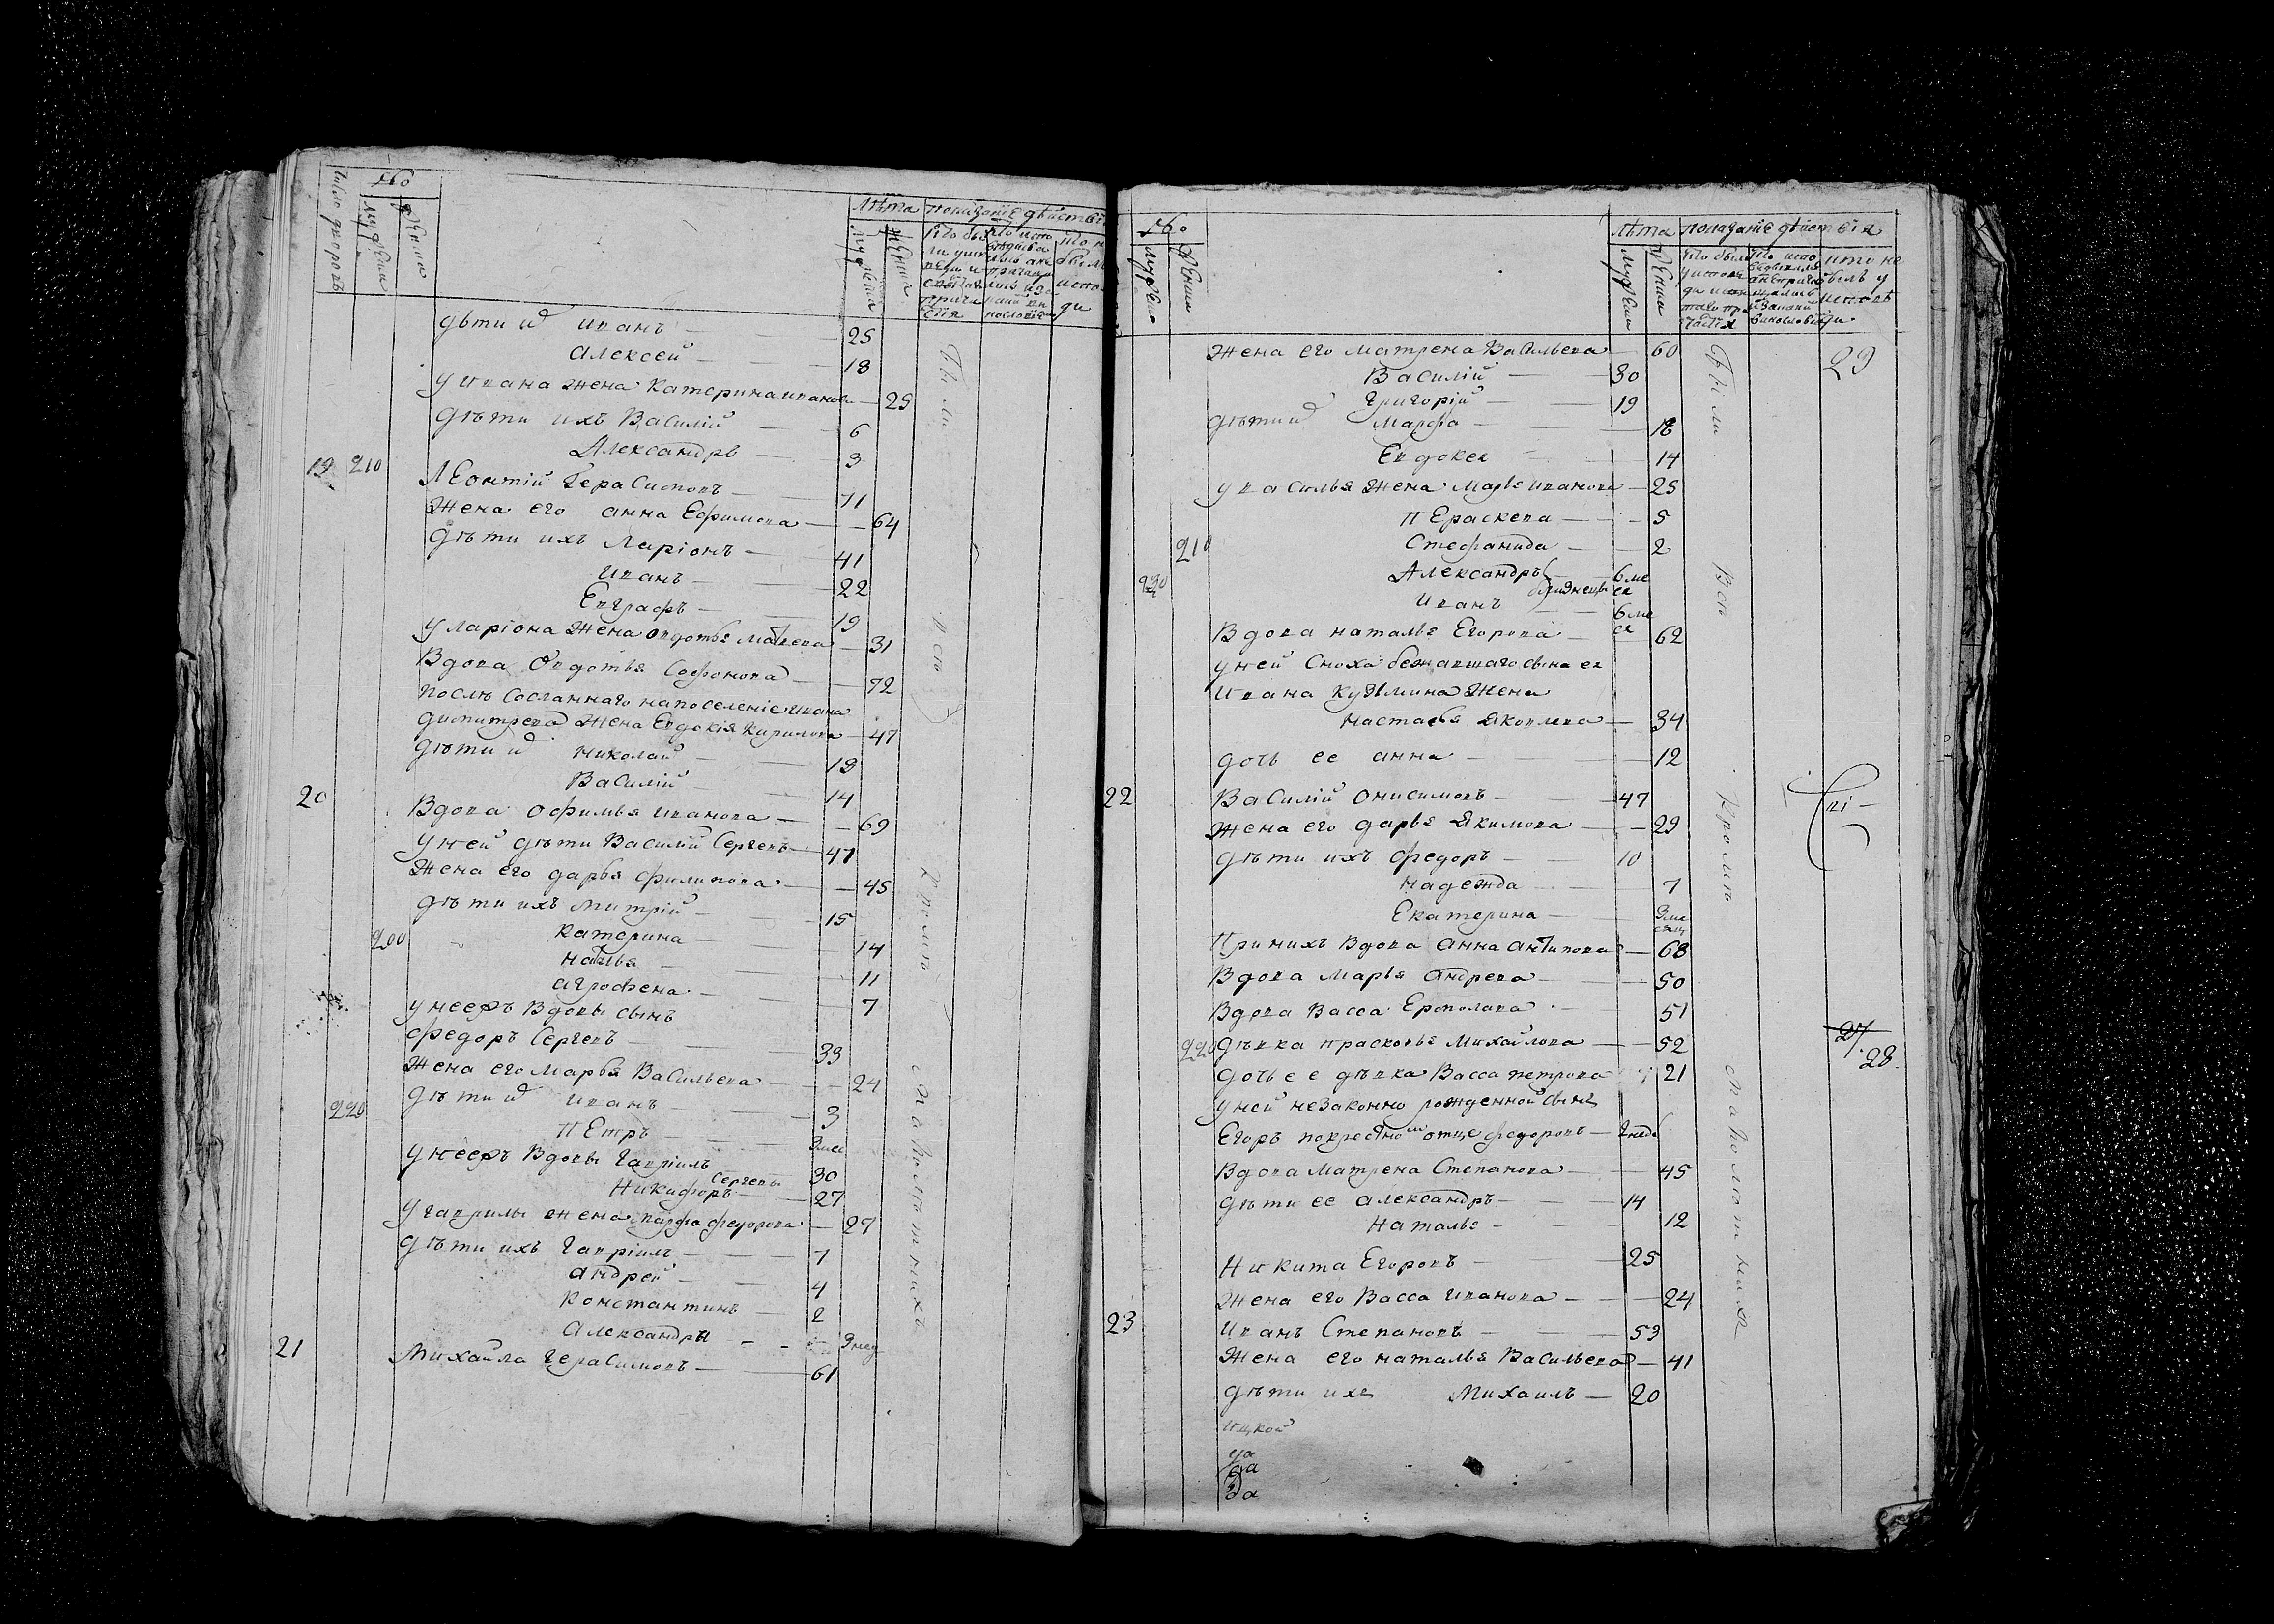 Число дворовъ
Мужеска
Женска
Лѣта показаніе дѣйствія
Мужеска
Женска
дѣти ихъ иванъ — 25
алексей — 18
у ивана жена катерина иванова — 25
дѣти ихъ Василій — 6
Александръ — 3
19 210
Леонтій Герасимовъ — 71
Жена его анна Ефимова — 64
дѣти ихъ Ларіонъ — 41
Иванъ — 22
Евграфъ — 19
у ларіона жена овдотья Матвева — 31
Вдова Овдотья Софонова — 72
послѣ сосланнаго на поселеніе ивана
димитрева жена Евдокія Кирилова — 47
дѣти ихъ николай — 19
Василій — 14
20
Вдова офимья иванова — 69
у ней дѣти Василий Сергевъ — 47
Жена его дарья филипова — 45
дѣти ихъ митрій — 15
200
катерина — 14
на — 11
агрофена — 7
у неежъ вдовы сынъ
федоръ Сергевъ — 33
Жена его марья Васильева — 24
220
дѣти ихъ иванъ — 3
Петръ — 3 ме
у неежъ вдовы гавріилъ — 30
Сергевы
Никифоръ — 27
у гаврилы жена марфа федорова — 27
дѣти ихъ гавріилъ — 7
андрей — 4
константинъ — 2
александръ — 3 нед
21
Михайла герасимовъ — 61
Были
всѣ
кромѣ
малолѣтнихъ
Мужеска
Женска
Лѣта показаніе дѣйствія
Мужеска
Женска
Жена его матрена Васильева — 60
29
Василій — 30
григорій — 19
дѣти ихъ Марфа — 18
Евдокея — 14
у василья жена Марья иванова — 25
Пераскева — 5
210
Стефанида — 2
230
Александръ — 6 ме
близнецы
Иванъ — 6 ме
Вдова наталья Егорова — 62
у ней сноха бежавшаго сына ея
ивана кузмина жена
настасья Яковлева — 34
дочь ее анна — 12
22
Василій онисимовъ — 47
Жена его дарья Якимова — 29
дѣти ихъ федоръ — 10
надежда — 7
Екатерина — 3 ме
При нихъ вдова анна антипова — 68
Вдова Марья андрева — 50
Вдова Васса Ермолава — 51
220
дѣвка прасковья михайлова — 52
27
28.
дочь ее дѣвка Васса петрова — 21
у ней незаконно рожденной сынъ
Егоръ по крестномъ отце федоровъ — 2 неде
Вдова матрена Степанова — 45
дѣти ее александръ — 14
наталья — 12
Никита Егоровъ — 25
Жена его Васса иванова — 24
23
Иванъ Степановъ — 53
Жена его наталья Васильева — 41
дѣти ихъ Михаилъ — 20
Были
всѣ
кромѣ
малолѣтнихъ